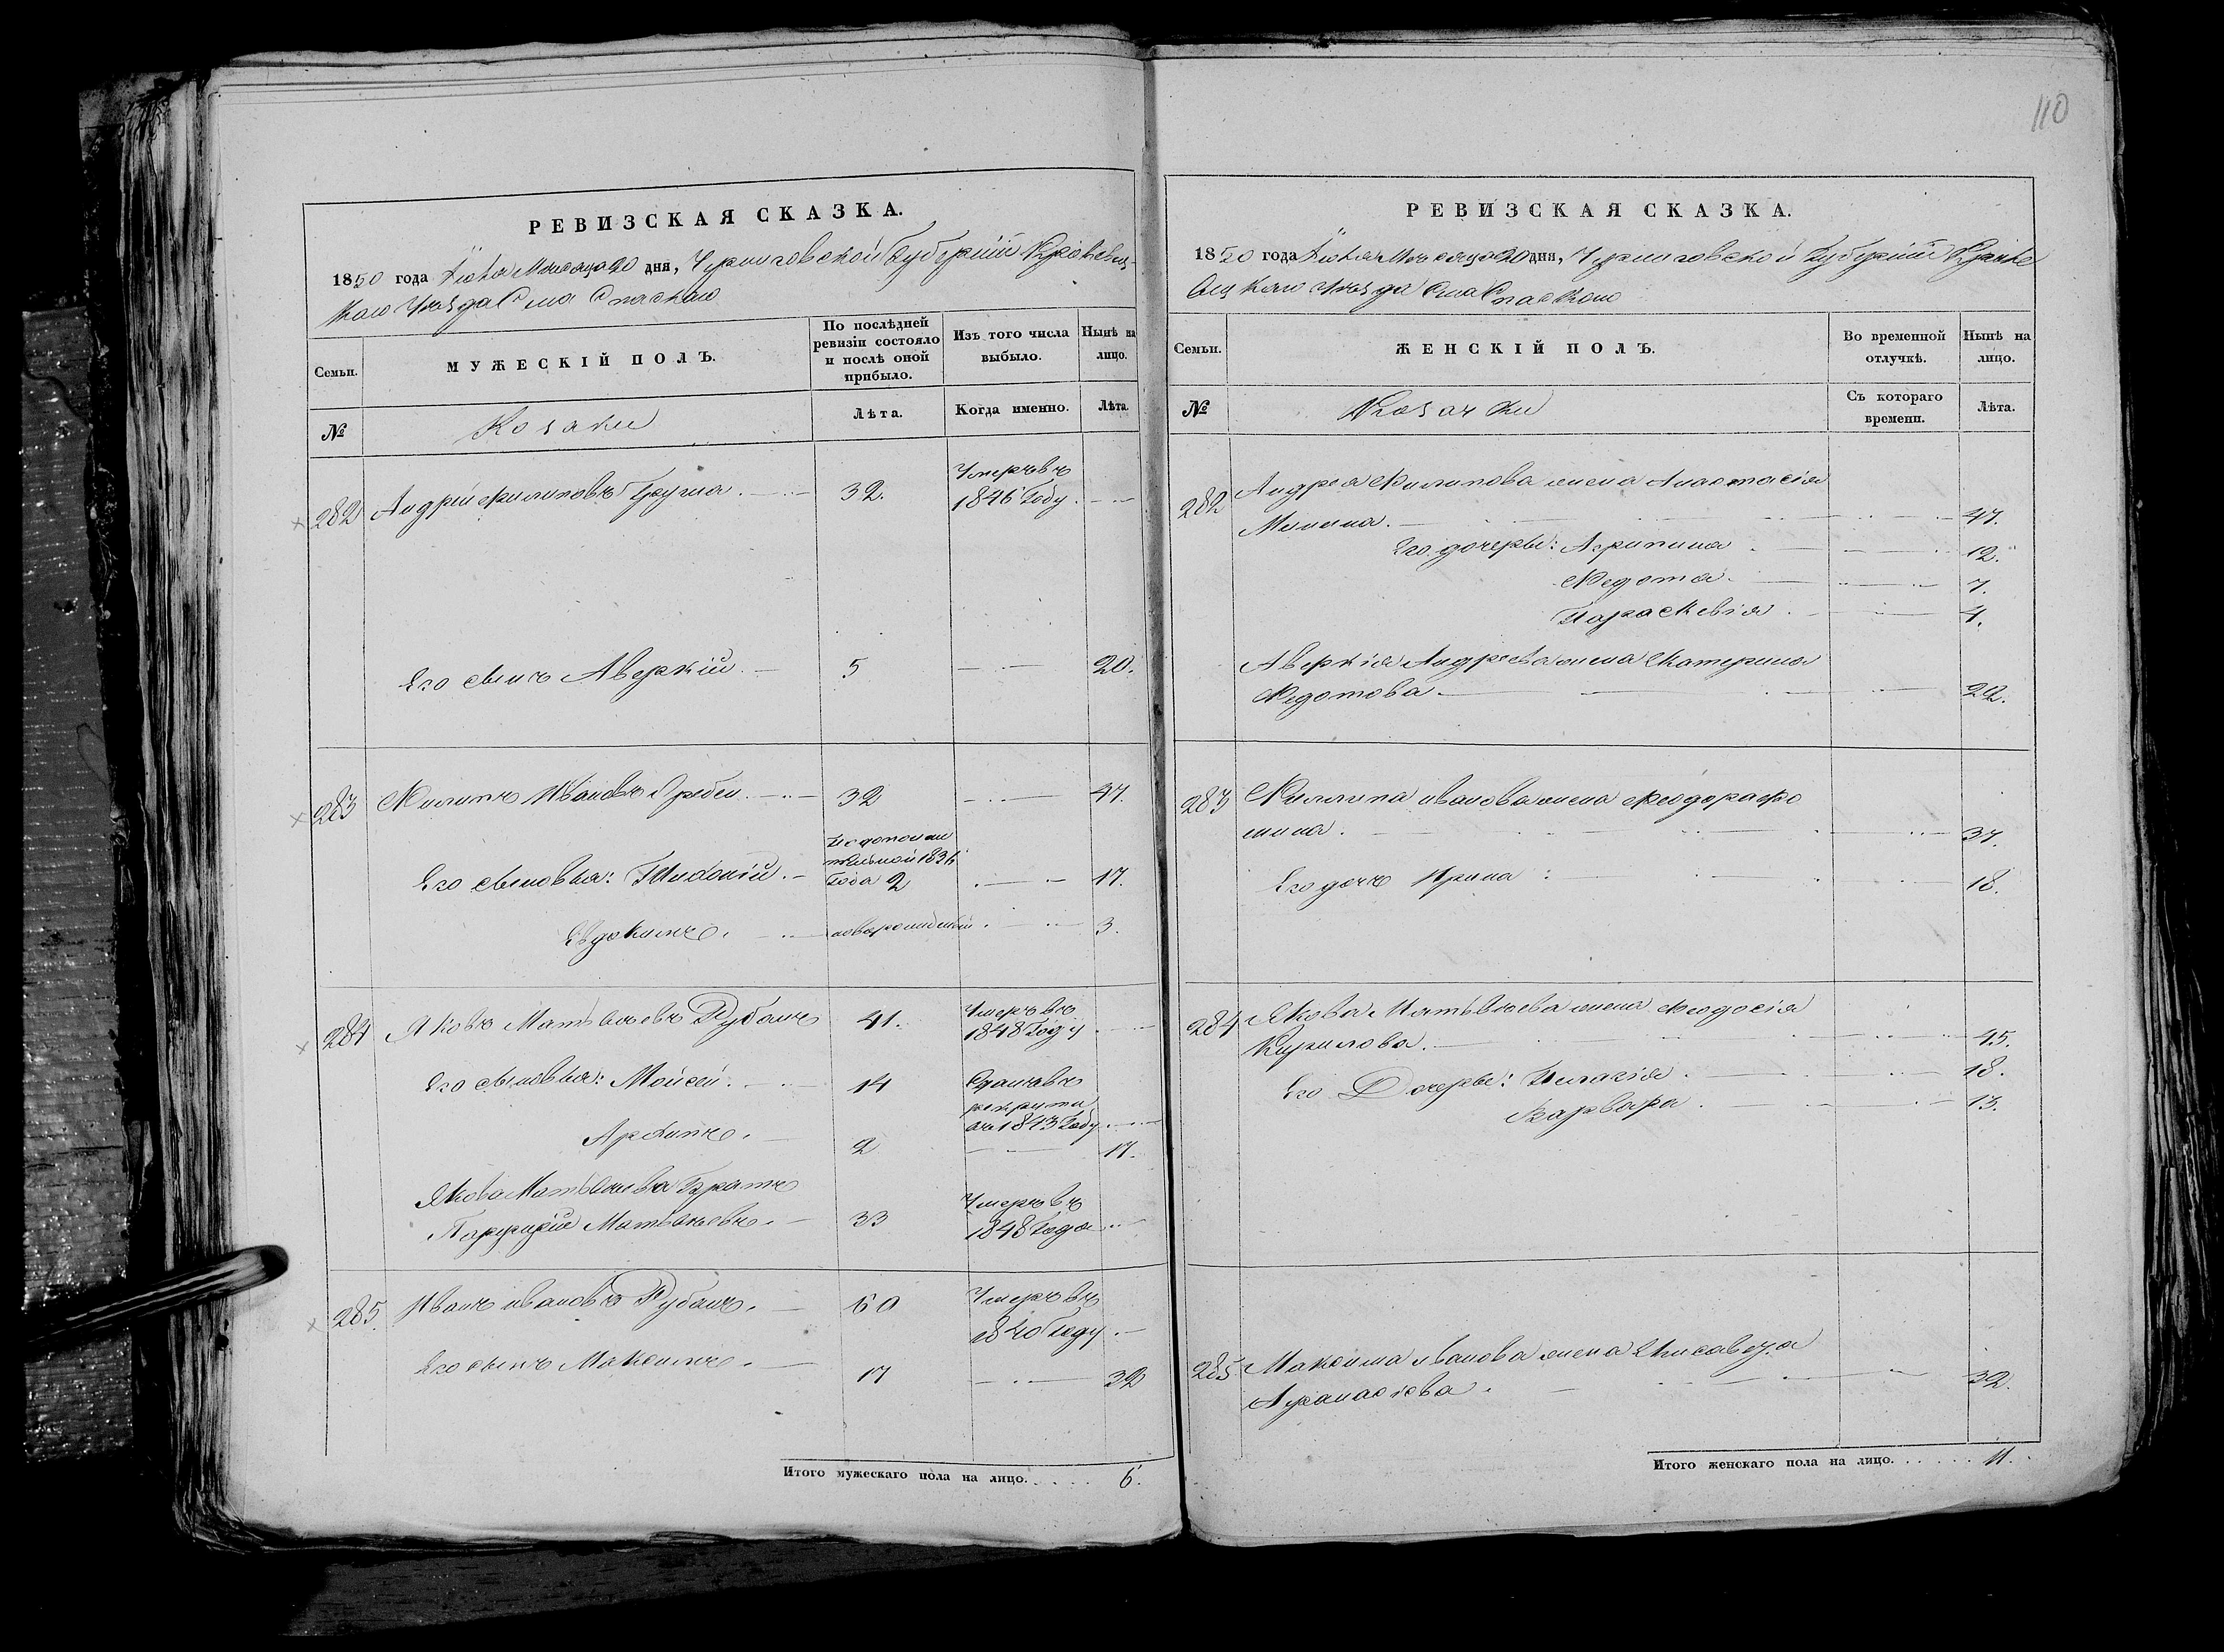 РЕВИЗСКАЯ СКАЗКА.
1850 года Мѣсяца 20 дня, Черниговской Губерніи Кролевец-
каго Уѣзда Села Спаского
Семьи.
МУЖЕСКІЙ ПОЛЪ.
По послѣдней
ревизіи состояло
и послѣ оной
прибыло.
Изъ того числа
выбыло.
Нынѣ на
лицо.
№
Козаки
Лѣта.
Когда именно.
Лѣта.
Умеръ въ
282 Андрей Филиповъ 32. 1846 Году
Его сынъ Аверкій 5 20.
283 Филипъ Ивановъ 32 47.
Его сыновья: 1836 Года 2 17.
Евдокимъ новорожденный 3.
284 Яковъ Матвѣевъ Рубанъ 41. Умеръ въ
1848 Году
Его сыновья: Мойсей 14 Сданъ въ
рекруты
1843 Году
Архипъ 2 17.
Якова Матвѣева Братъ
Матвѣевъ 33 Умеръ въ
1848 Года
285 Иванъ Ивановъ Рубанъ 60 Умеръ въ
1840 Году
Его сынъ Максимъ 17 32
Итого мужескаго пола на лицо. 6.
110
РЕВИЗСКАЯ СКАЗКА.
1850 года Мѣсяца 20 дня, Черниговской Губерніи Кроле
вецкаго Уѣзда Села Спаского
Семьи.
ЖЕНСКІЙ ПОЛЪ.
Во временной
отлучкѣ.
Нынѣ на
лицо.
№
Козачки
Съ котораго
времени.
Лѣта.
282 Андрея Филипова жена Анастасія
47.
Его дочеры: Агрипина 12.
Федота 7.
Параскевія 4.
Аверкія Андреева жена Екатерина
Федотова 22.
283 Филипа Иванова жена Феодора Фо
мина 37.
Его дочь Ирина 18.
284 Якова Матвѣева жена Феодосія
Кирилова 45.
Его Дочеры: Пелагія 18.
Варвара 13.
285 Максима Иванова жена Елисавета
Афанасіева 32.
Итого женскаго пола на лицо. 11.